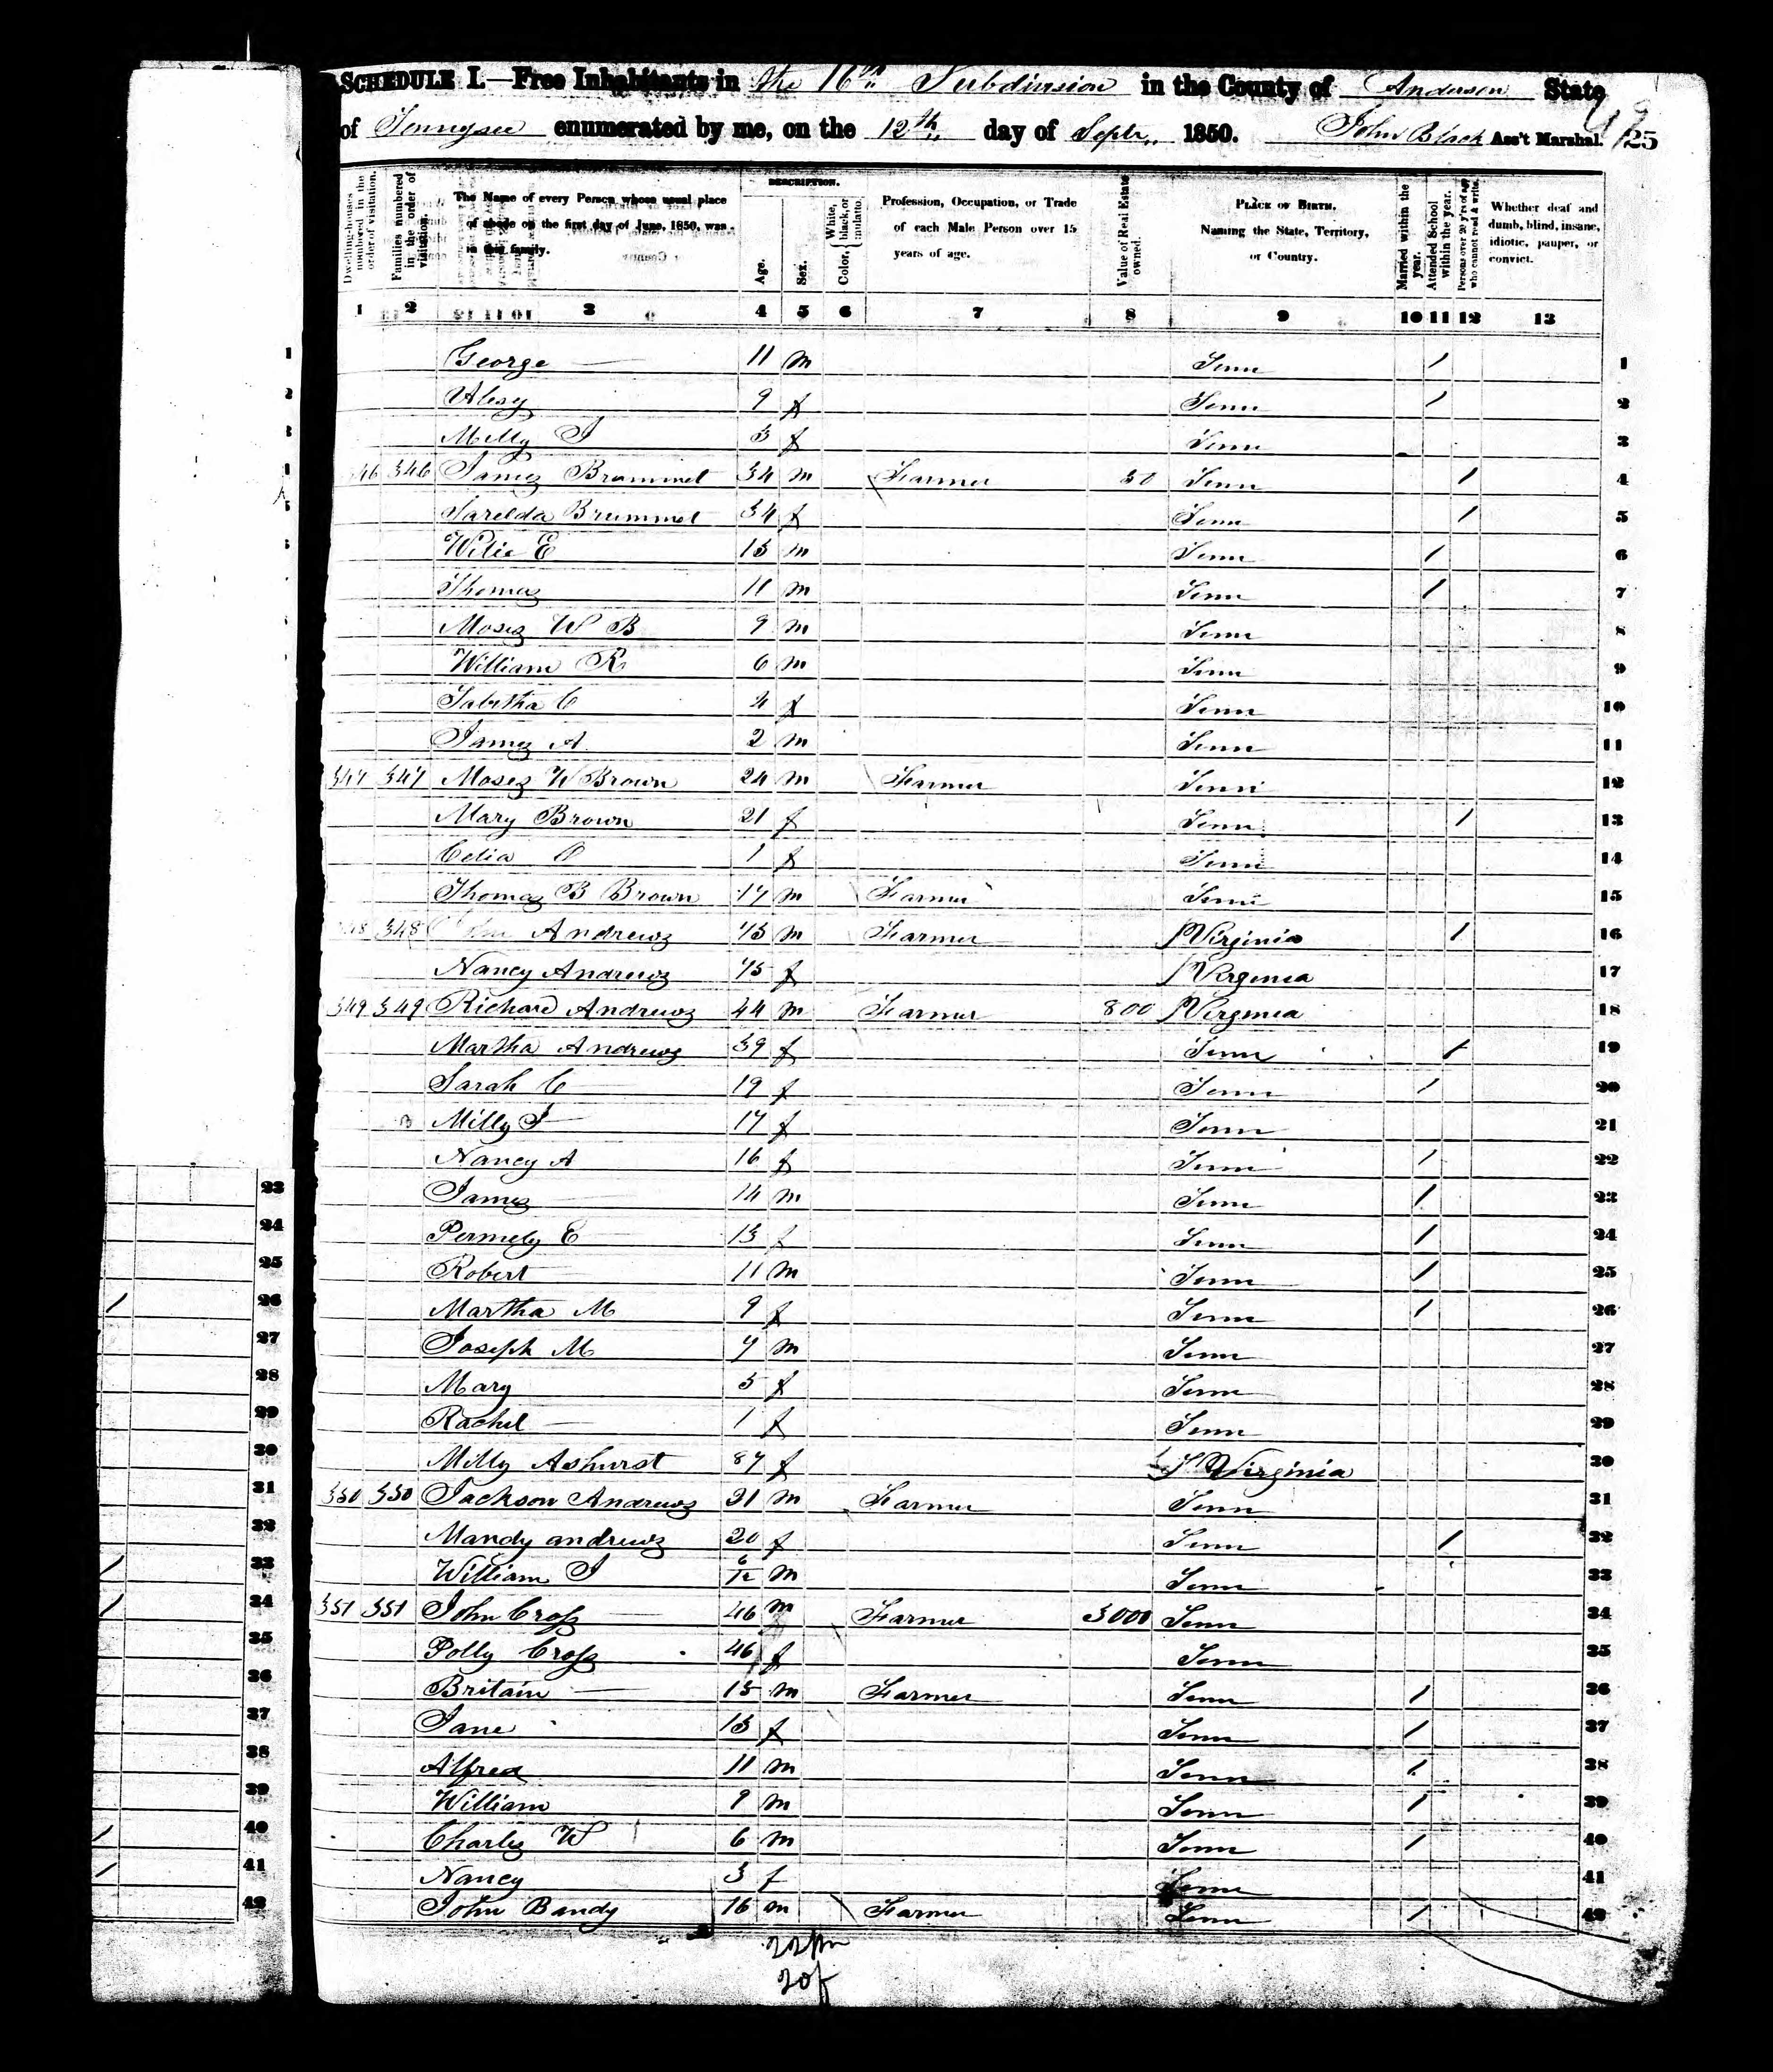 SCHEDULE I.—Free Inhabitants in the 16th Subdivision in the County of Anderson State
of Tennysee enumerated by me, on the 12th day of Septr 1850. John Black Ass't Marshal. 25
Dwelling-houses numbered in the order of visitation. Families numbered in the order of visitation. The Name of every Person whose usual place of abode on the first day of June, 1850, was in this family. DESCRIPTION. Age. Sex. Color, White, black, or mulatto. Profession, Occupation, or Trade of each Male Person over 15 years of age. Value of Real Estate owned. PLACE OF BIRTH, Naming the State, Territory, or Country. Married within the year. Attended School within the year. Persons over 20 y'rs of age who cannot read & write. Whether deaf and dumb, blind, insane, idiotic, pauper, or convict.
1 2 3 4 5 6 7 8 9 10 11 12 13
George 11 m Tenn / 1
9 f Tenn / 2
Milly J f Tenn 3
46 346 James Brummet 34 m Farmer 50 Tenn / 4
Sarelda Brummet 34 f Tenn / 5
Wilie E 13 m Tenn / 6
Thomas 11 m Tenn / 7
Moses W B 9 m Tenn 8
William R 6 m Tenn 9
Tabitha C 4 f Tenn 10
James A 2 m Tenn 11
347 347 Moses W Brown 24 m Farmer Tenn 12
Mary Brown 21 f Tenn / 13
Celia 1 f Tenn 14
Thomas B Brown 17 m Farmer Tenn 15
48 348 Andrews 75 m Farmer Virginia / 16
Nancy Andrews 75 f Virginia 17
349 349 Richard Andrews 44 m Farmer 800 Virginia 18
Martha Andrews 39 f Tenn / 19
Sarah C 19 f Tenn / 20
Milly J 17 f Tenn 21
Nancy A 16 f Tenn / 22
James 14 m Tenn / 23
Permely E 13 f Tenn / 24
Robert 11 m Tenn / 25
Martha M 9 f Tenn / 26
Joseph M 7 m Tenn 27
Mary 5 f Tenn 28
Rachel 1 f Tenn 29
Milly Ashurst 87 f Virginia 30
350 350 Jackson Andrews 21 m Farmer Tenn 31
Mandy andrews 20 f Tenn / 32
William J 6/12 m Tenn 33
351 351 John Cross 46 m Farmer 3000 Tenn 34
Polly Cross 46 f Tenn 35
Britain 15 m Farmer Tenn / 36
Jane 13 f Tenn / 37
Alfred 11 m Tenn / 38
William 9 m Tenn / 39
Charles W 6 m Tenn / 40
Nancy 3 f Tenn 41
John Bandy 16 m Farmer Tenn / 42
22 m
20 f
23
24
25
/ 26
27
28
29
30
31
32
/ 33
/ 34
35
36
37
38
39
/ 40
/ 41
42